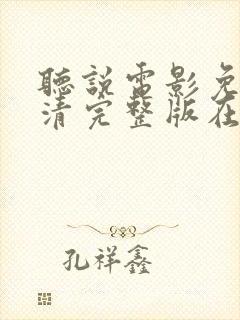 聽說電影免
清完整版在
孔祥鑫